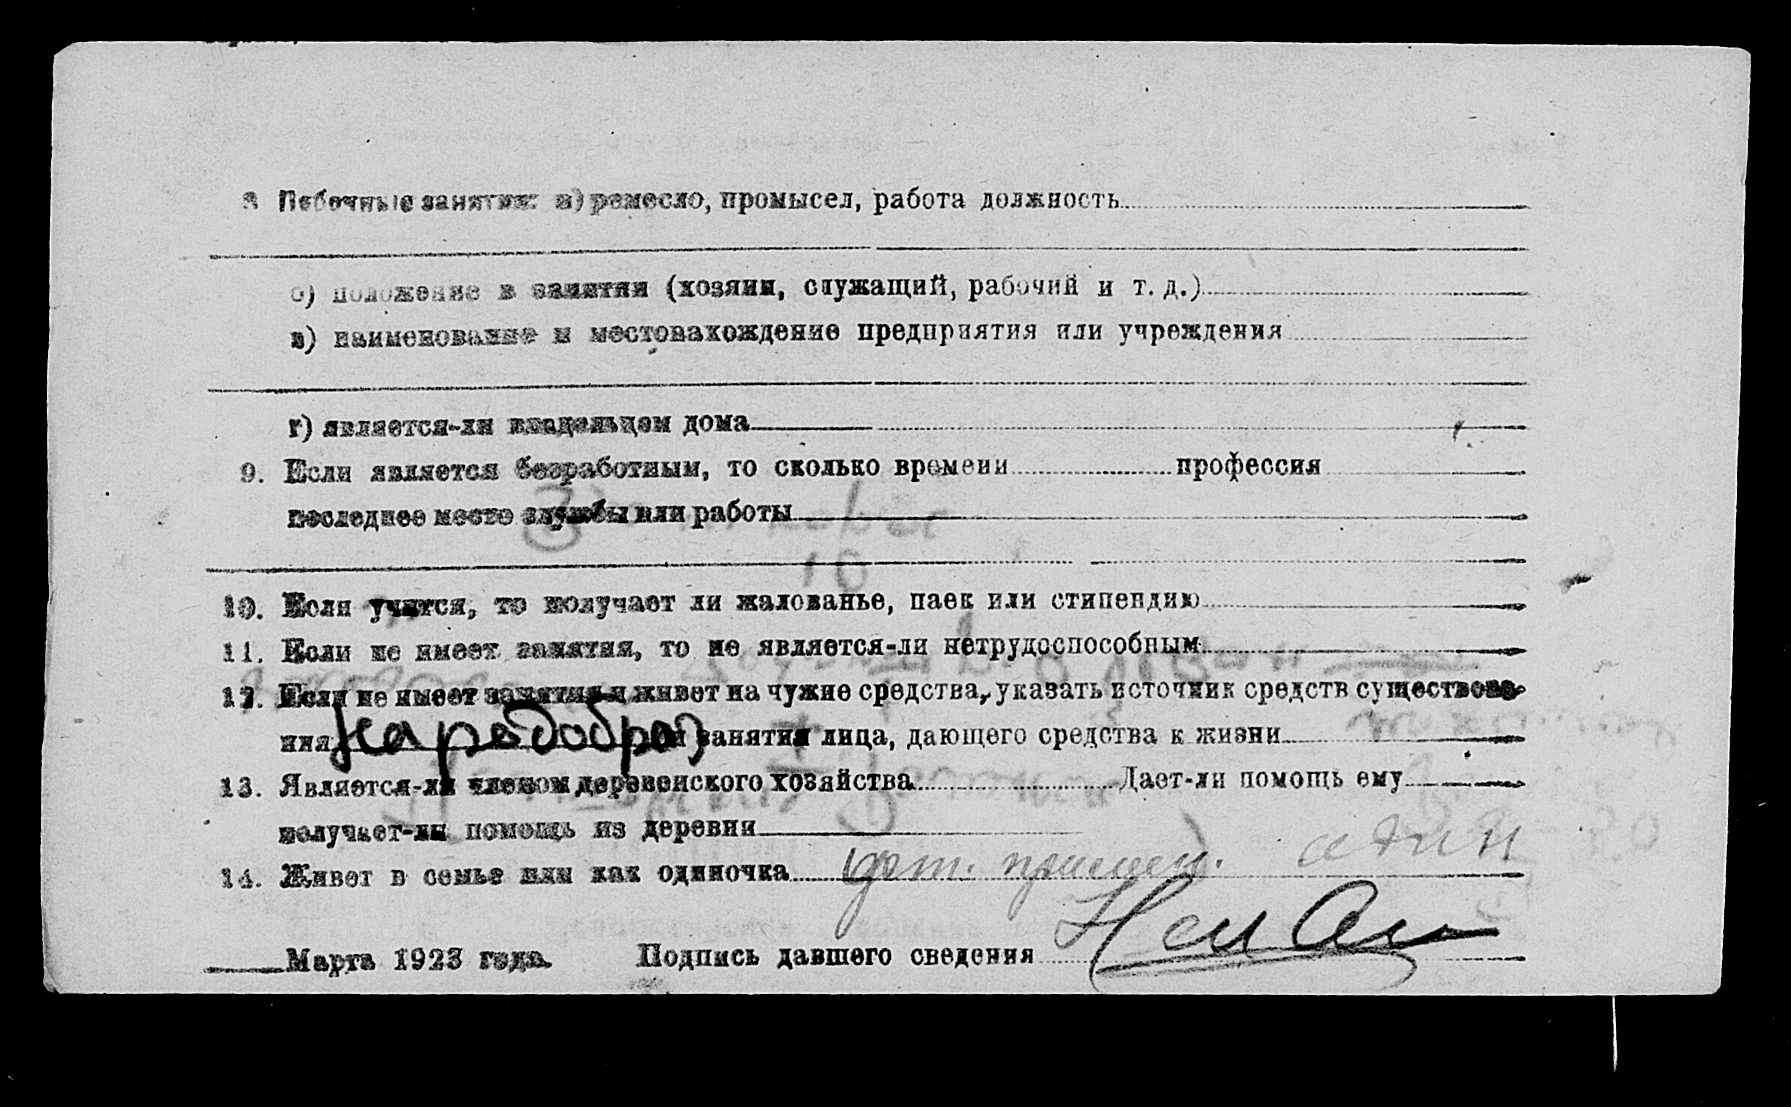 8 Побочные занятия: а) ремесло, промысел, работа должность
б) положение в занятии (хозяин, служащий, рабочий и т. д.)
в) наименование и местонахождение предприятия или учреждения
г) является-ли владельцем дома
9. Если является безработным, то сколько времени профессия
последнее место службы или работы
10. Если учится, то получает ли жалованье, паек или стипендию
11. Если не имеет занятия, то не является-ли нетрудоспособным
12. Если не имеет занятия и живет на чужие средства, указать источник средств существова-
ния Наробобраз и занятия лица, дающего средства к жизни
13. Является-ли членом деревенского хозяйства Дает-ли помощь ему
получает-ли помощь из деревни
14. Живет в семье или как одиночка дет. приемн. один
Марта 1923 года. Подпись давшего сведения